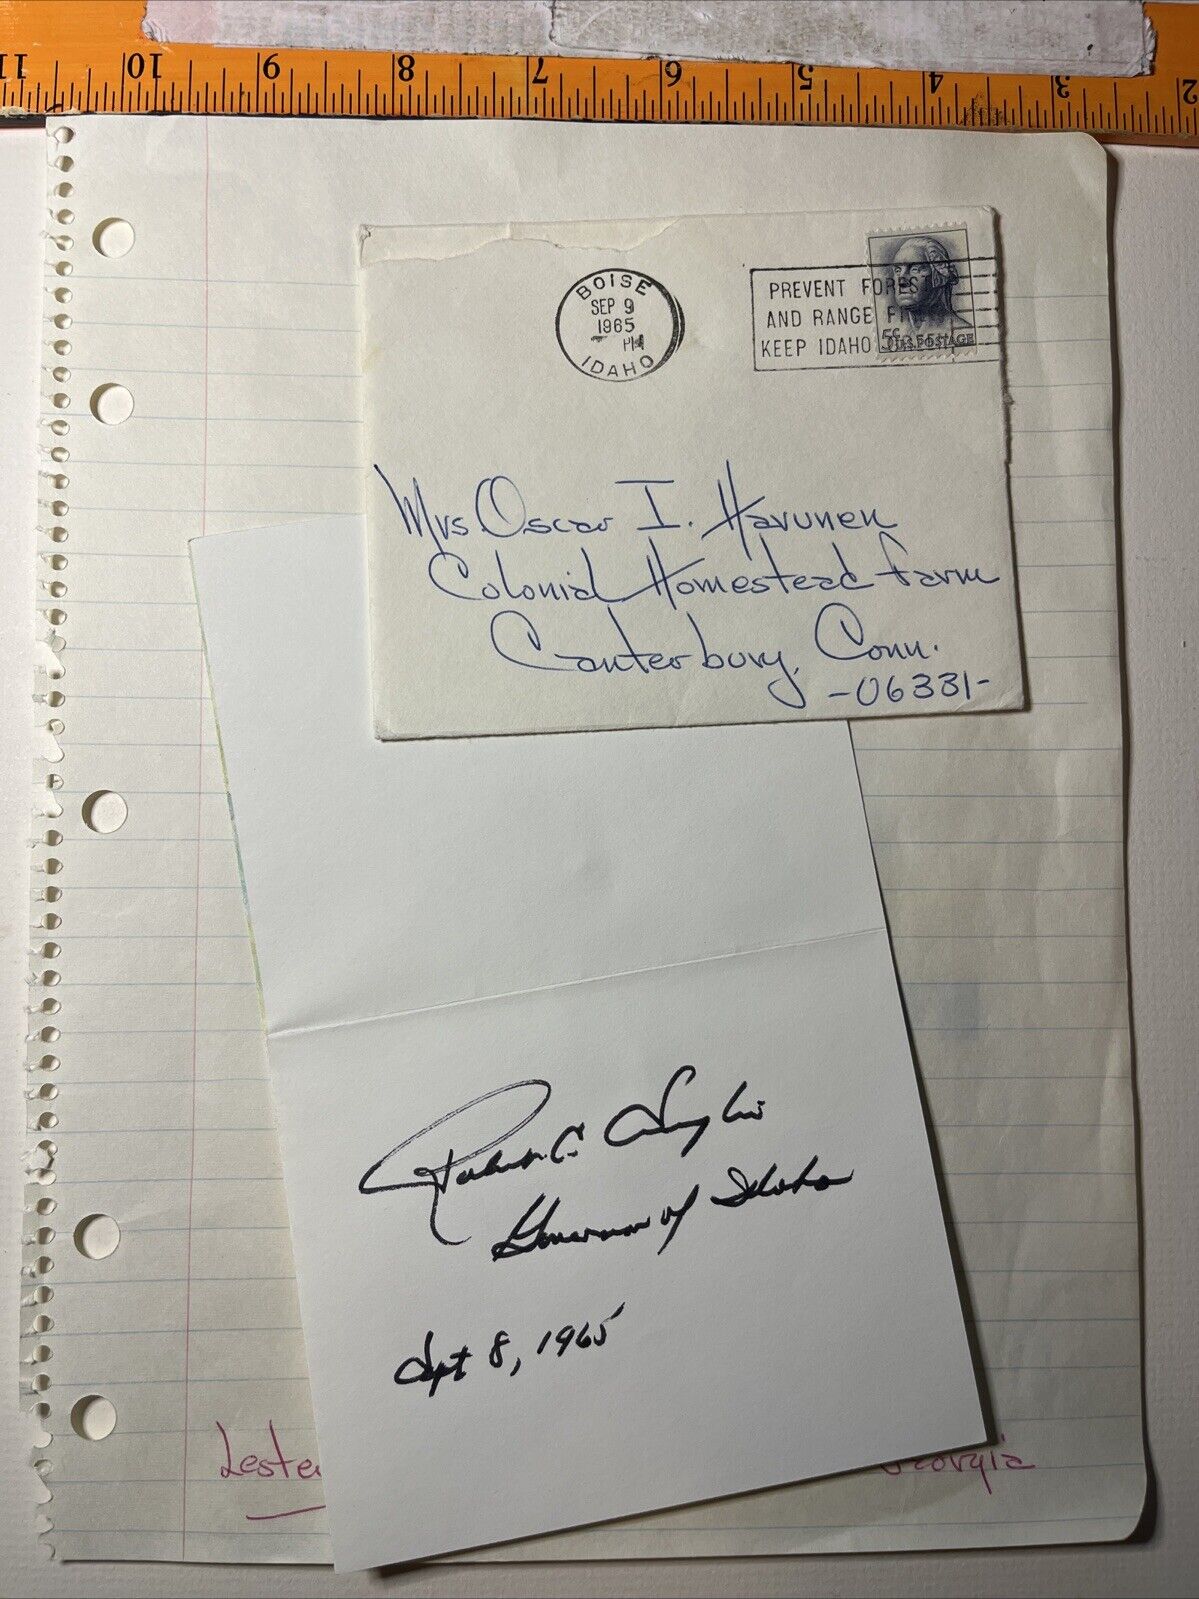 11 10 9 8 7 6 5 4 3 2
BOISE
SEP 9
1965
PM
IDAHO
PREVENT FOREST
AND RANGE FIRES
KEEP IDAHO
5¢ U.S. POSTAGE
Mrs Oscar I. Havunen
Colonial Homestead Farm
Canterbury, Conn.
-06331-
Robert E. Smylie
Governor of Idaho
Sept 8, 1965
Leste
eorgia